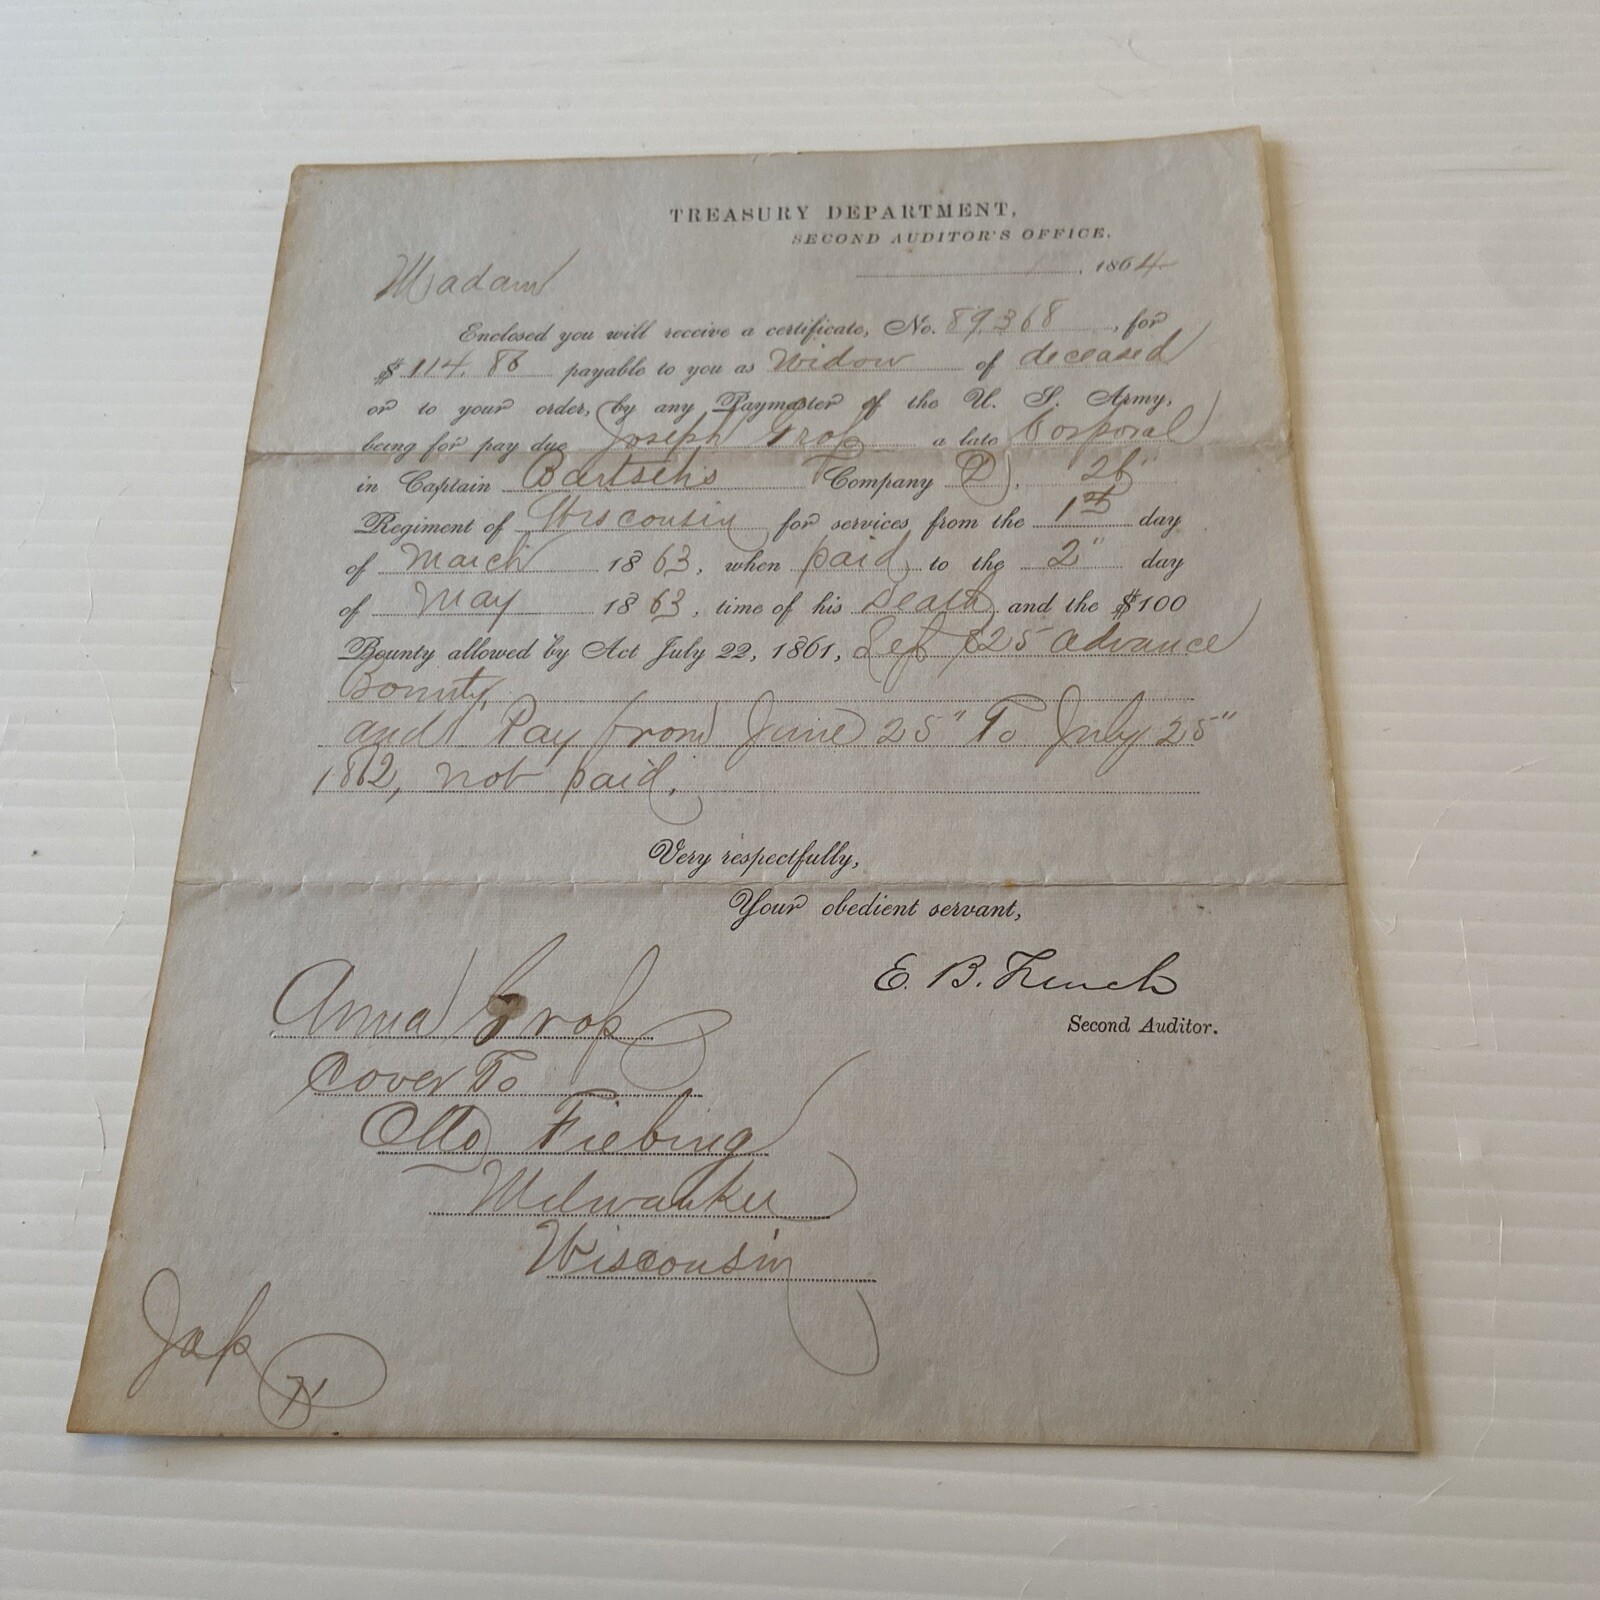 TREASURY DEPARTMENT,
SECOND AUDITOR'S OFFICE.
, 1864
Madam
Enclosed you will receive a certificate, No. 89368, for
$114.86 payable to you as Widow of deceased
or to your order, by any Paymaster of the U. S. Army,
being for pay due Joseph Groß a late Corporal
in Captain Bartsch's Company D, 26"
Regiment of Wisconsin for services from the 1st day
of March 1863, when paid, to the 2" day
of May 1863, time of his Death and the $100
Bounty allowed by Act July 22, 1861, Less $25 advance
Bounty,
and Pay from June 25" To July 25"
1862, not paid.
Very respectfully,
Your obedient servant,
E. B. French
Second Auditor.
Anna Groß
Cover To
Otto Fiebing
Milwaukee
Wisconsin